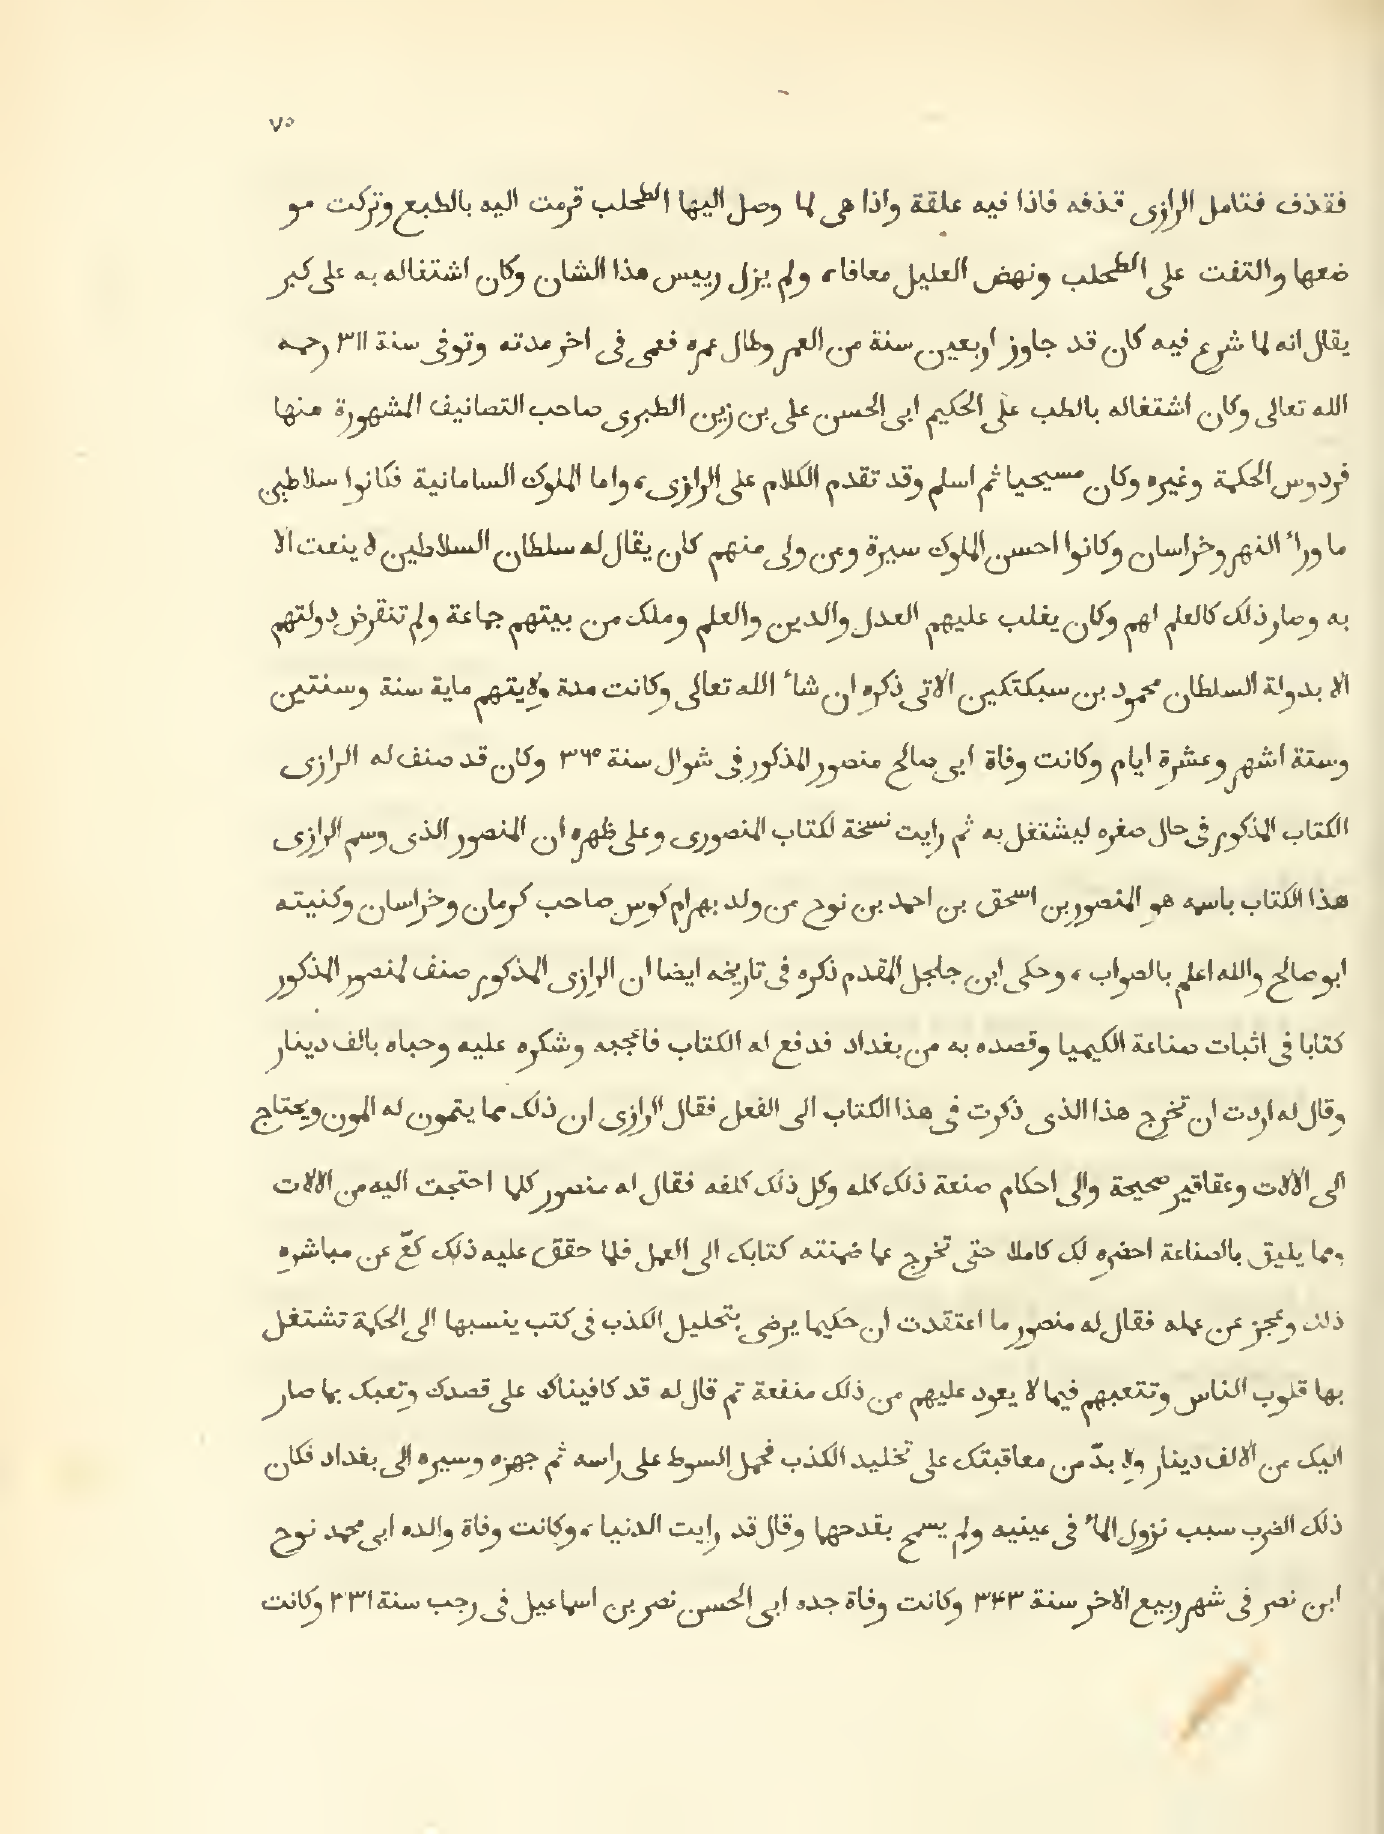 ٧٥
فقذف فتامل الرازى قذفه فاذا فيه علقة واذا هى لما وصل اليها الطحلب قرمت اليه بالطبع وتركت مو
ضعها والتفت على الطحلب ونهض العليل معافا، ولم يزل رييس هذا الشان وكان اشتغاله به على كبر
يقال انه لما شرع فيه كان قد جاوز اربعين سنة من العمر وطال عمره فعمى فى اخر مدته وتوفى سنة ٣١١ رحمه
الله تعالى وكان اشتغاله بالطب على الحكيم ابى الحسن على بن زين الطبرى صاحب التصانيف المشهورة منها
فردوس الحكمة وغيره وكان مسيحيا ثم اسلم وقد تقدم الكلام على الرازى، واما الملوك السامانية فكانوا سلاطين
ما وراٴ النهر وخراسان وكانوا احسن الملوك سيرة ومن ولى منهم كان يقال له سلطان السلاطين لا ينعت الا
به وصار ذلك كالعلم لهم وكان يغلب عليهم العدل والدين والعلم وملك من بيتهم جماعة ولم تنقرض دولتهم
الا بدولة السلطان محمود بن سبكتكين الاتى ذكره ان شاٴ الله تعالى وكانت مدة ولايتهم ماية سنة وسنتين
وستة اشهر وعشرة ايام وكانت وفاة ابى صالح منصور المذكور فى شوال سنة ٣٦٥ وكان قد صنف له الرازى
الكتاب المذكور فى حال صغره ليشتغل به ثم رايت نسخة لكتاب المنصورى وعلى ظهره ان المنصور الذى وسم الرازى
هذا الكتاب باسمه هو المنصور بن اسحق بن احمد بن نوح من ولد بهرام كوس صاحب كرمان وخراسان وكنيته
ابو صالح والله اعلم بالصواب، وحكى ابن جلجل المقدم ذكره فى تاريخه ايضا ان الرازى المذكور صنف لمنصور المذكور
كتابا فى اثبات صناعة الكيميا وقصده به من بغداد فدفع له الكتاب فاعجبه وشكره عليه وحباه بالف دينار
وقال له اردت ان تخرج هذا الذى ذكرت فى هذا الكتاب الى الفعل فقال الرازى ان ذلك مما يتمون له المون ويحتاج
الى الالات وعقاقير صحيحة والى احكام صنعة ذلك كله وكل ذلك كلفه فقال له منصور كلما احتجت اليه من الالات
ومما يليق بالصناعة احضره لك كاملا حتى تخرج عما ضمنته كتابك الى العمل فلما حقق عليه ذلك كعّ عن مباشره
ذلك وعجز عن عمله فقال له منصور ما اعتقدت ان حكيما يرضى بتحليل الكذب فى كتب ينسبها الى الحكمة تشتغل
بها قلوب الناس وتتعبهم فيما لا يعود عليهم من ذلك منفعة ثم قال له قد كافيناك على قصدك وتعبك بما صار
اليك من الالف دينار ولا بدّ من معاقبتك على تخليد الكذب فحمل السوط على راسه ثم جهزه وسيره الى بغداد فكان
ذلك الضرب سبب نزول الماٴ فى عينيه ولم يسمح بقدحها وقال قد رايت الدنيا، وكانت وفاة والده ابى محمد نوح
ابن نصر فى شهر ربيع الاخر سنة ٣۴٣ وكانت وفاة جده ابى الحسن نصر بن اسماعيل فى رجب سنة ٣٣١ وكانت